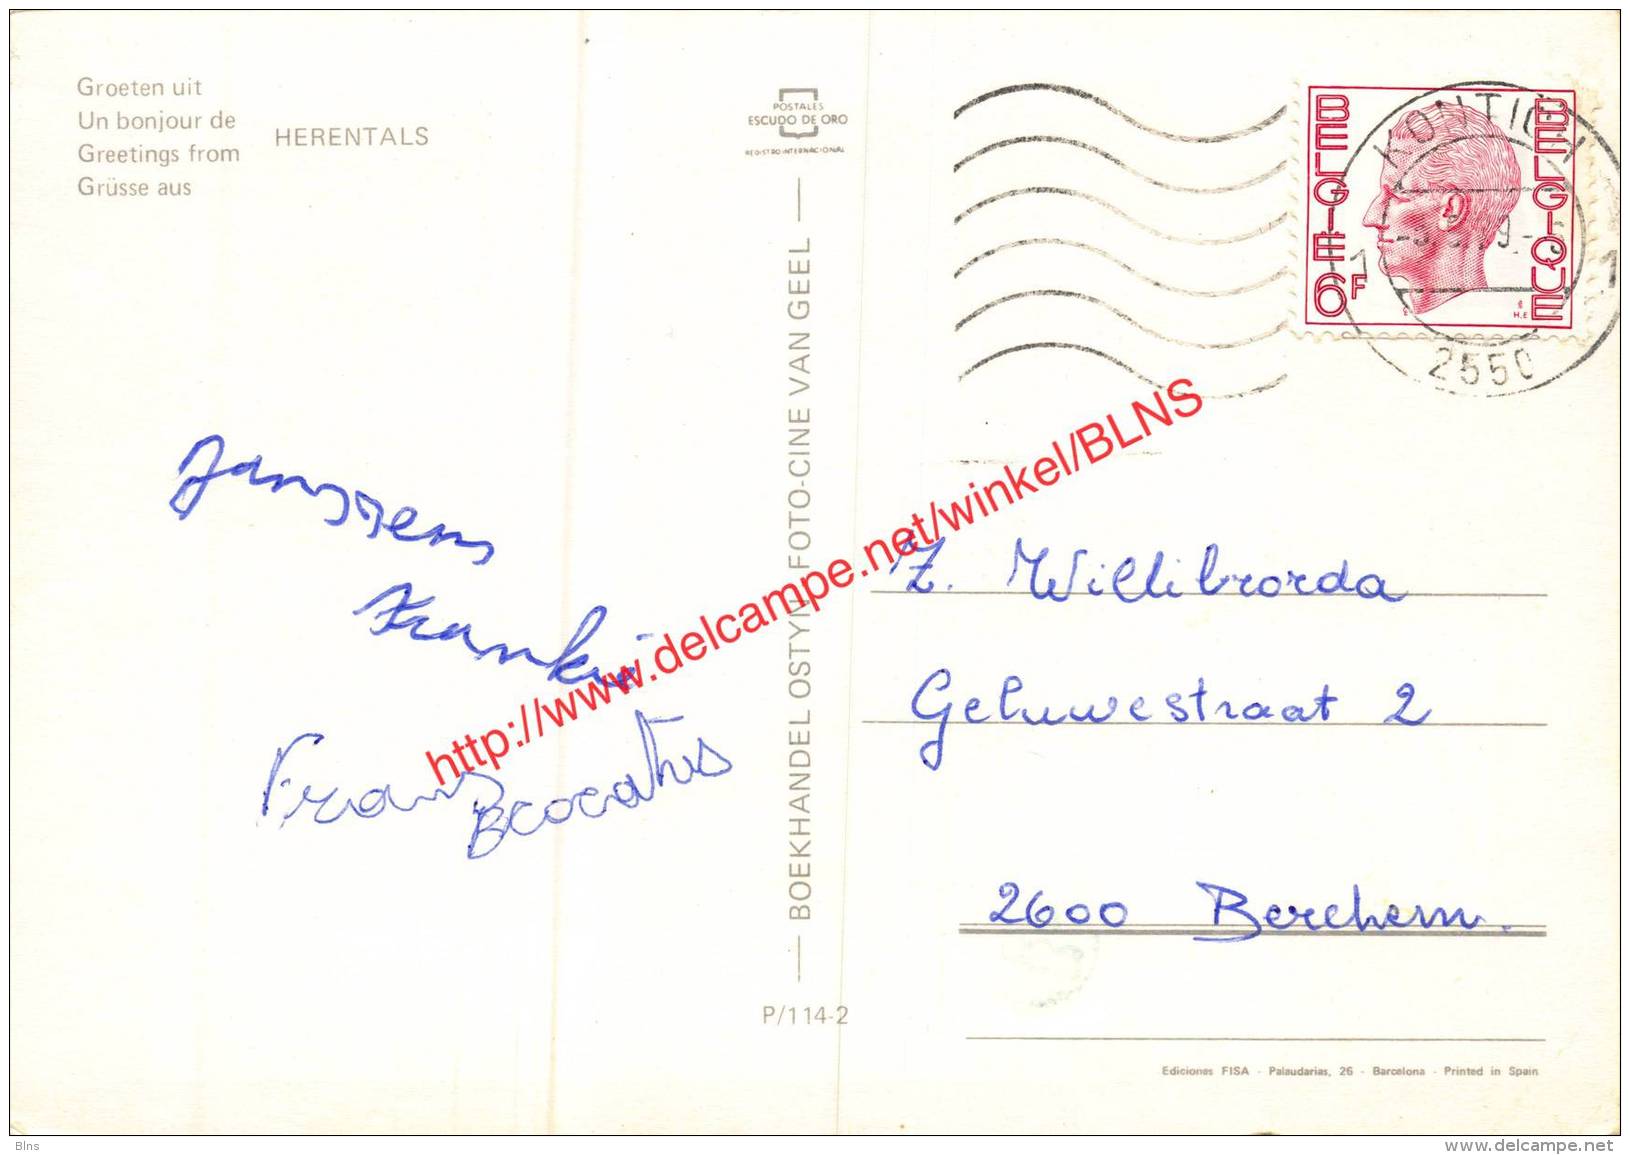 Groeten uit
Un bonjour de
Greetings from
Grüsse aus
HERENTALS
POSTALES
ESCUDO DE ORO
REGISTRO INTERNACIONAL
BELGIE 6F
BELGIQUE
H.E
KONTICH
1 1
2550
Janssens
Franki
Frans
BOEKHANDEL OSTYN FOTO-CINE VAN GEEL
P/114-2
Z. Willibrorda
Geluwestraat 2
2600 Berchem.
Ediciones FISA - Palaudarias, 26 - Barcelona - Printed in Spain
http://www.delcampe.net/winkel/BLNS
Blns
www.delcampe.net